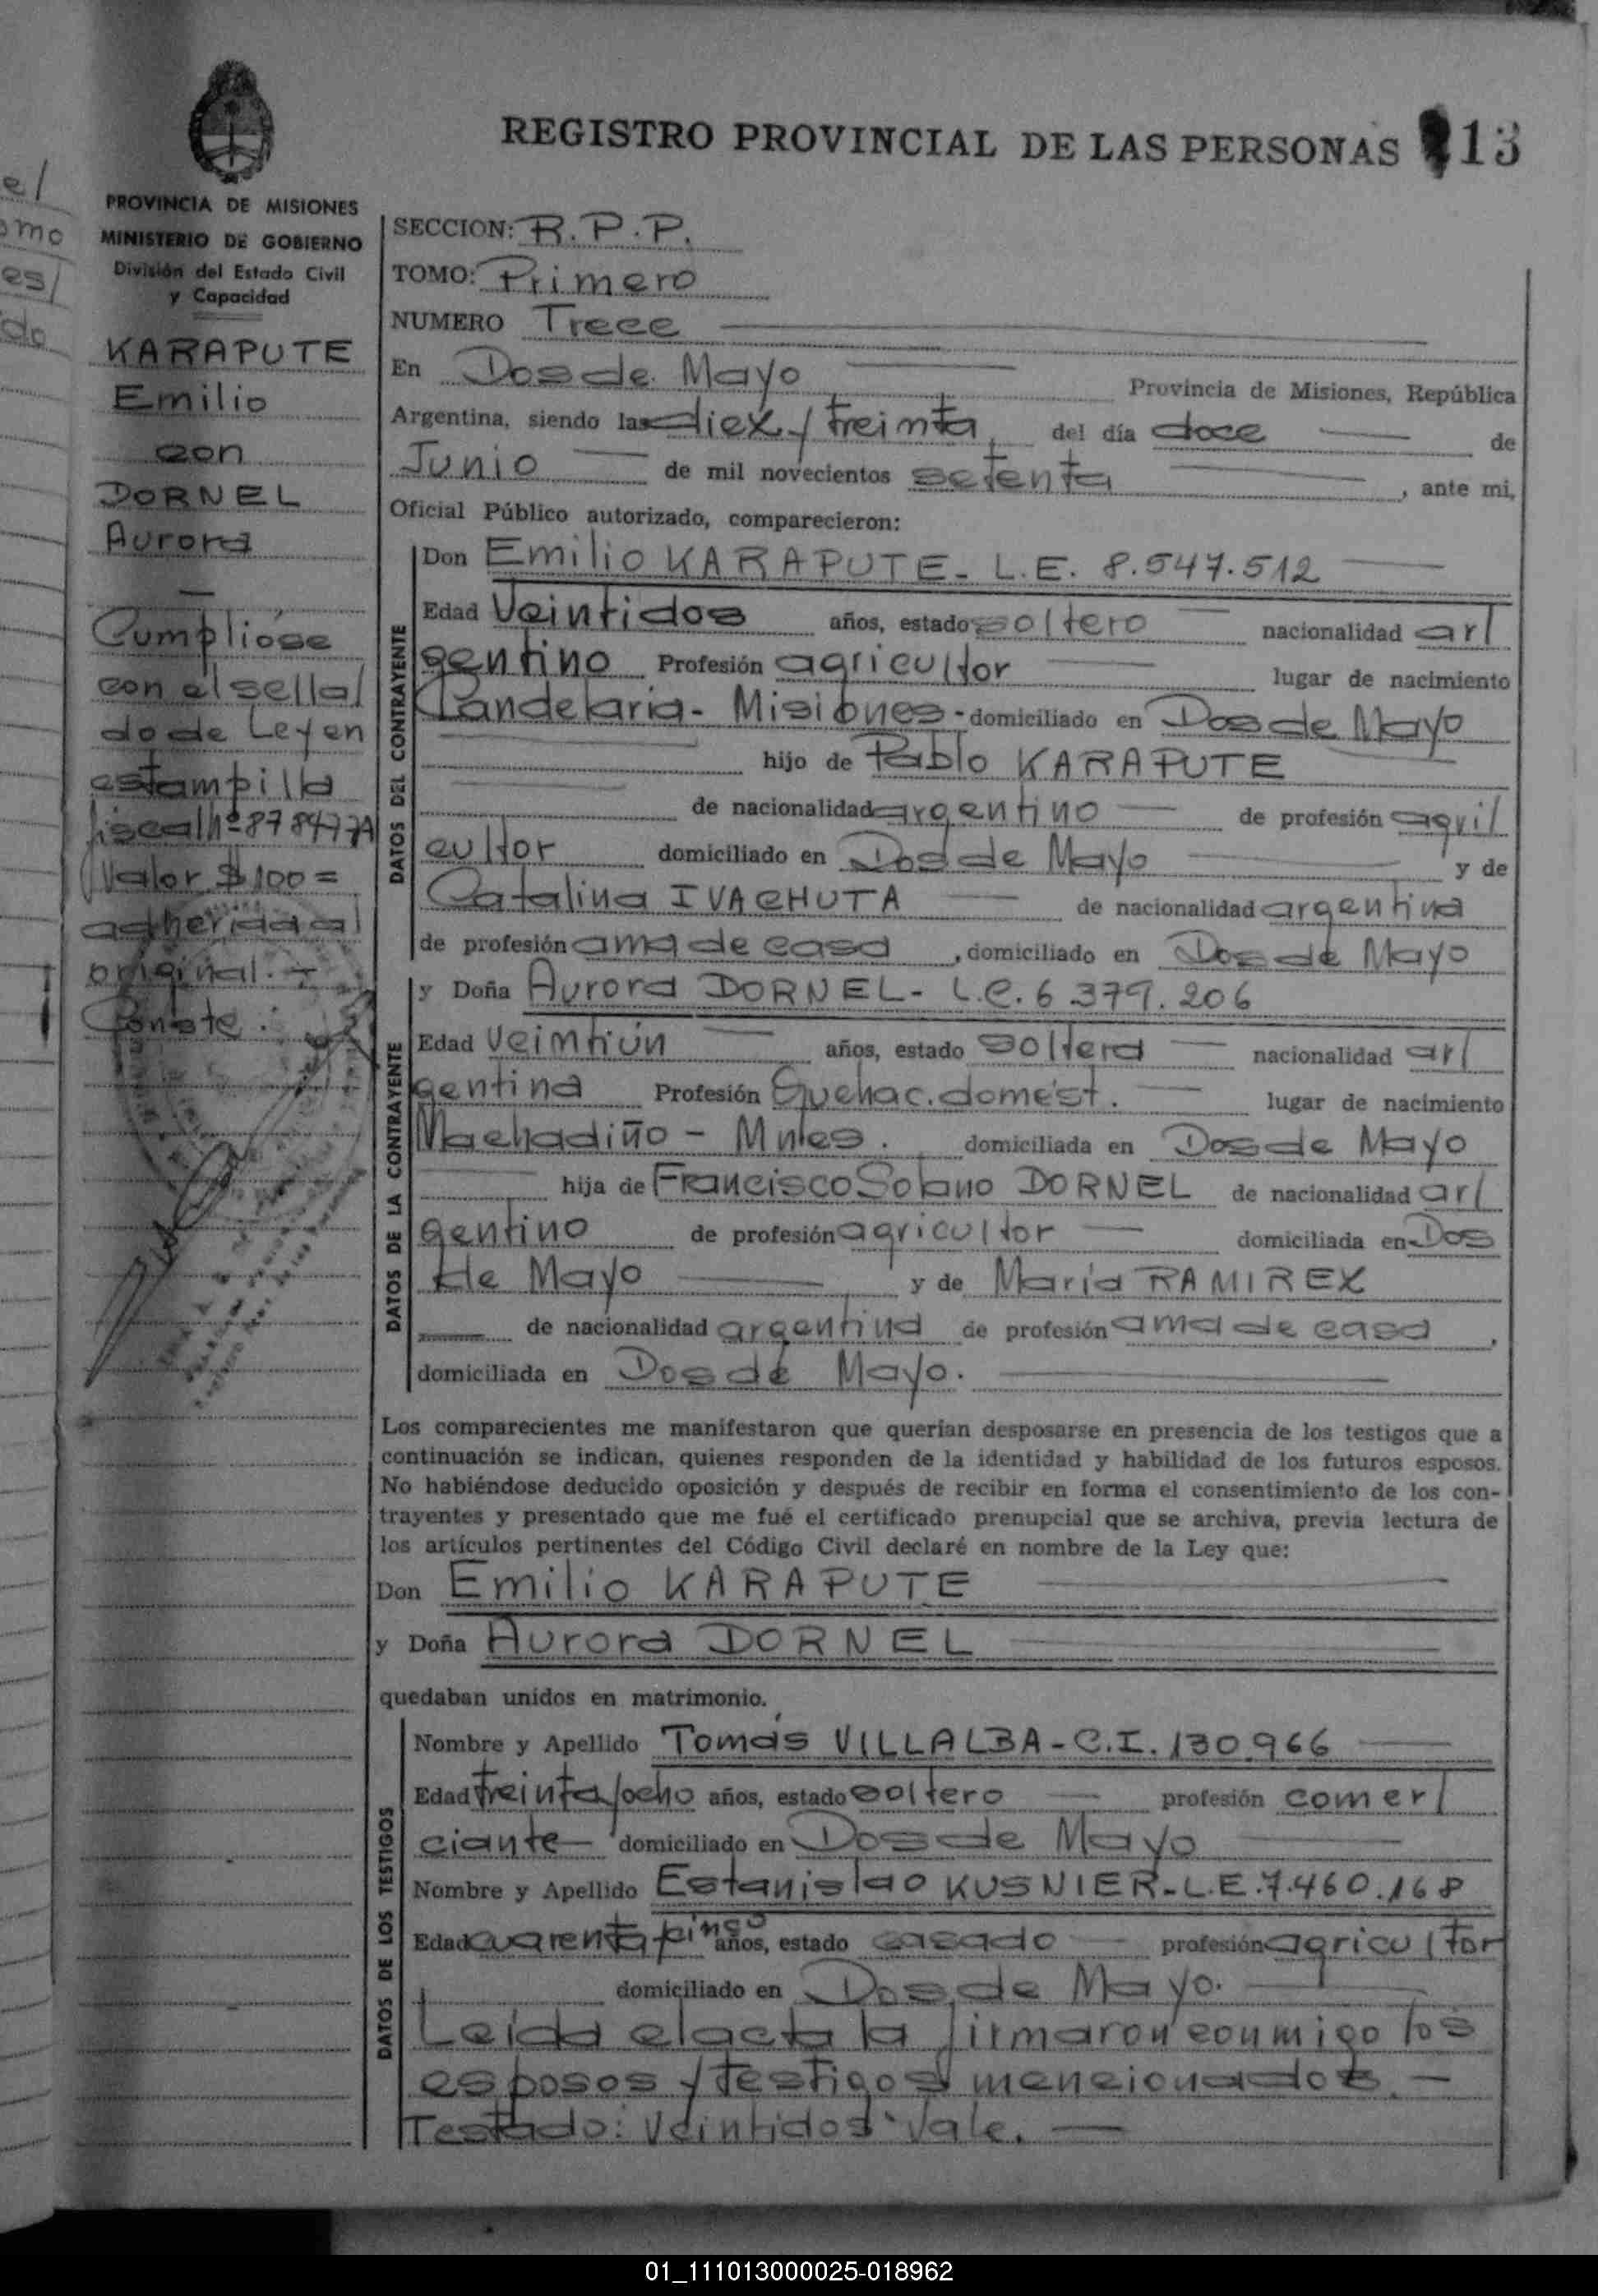 el
omo
es/
do
REGISTRO PROVINCIAL DE LAS PERSONAS 13
PROVINCIA DE MISIONES
MINISTERIO DE GOBIERNO
División del Estado Civil
y Capacidad
KARAPUTE
Emilio
con
DORNEL
Aurora
Cumplióse
con el sella/
do de Ley en
estampilla
fiscal Nº 878477A
Valor $ 100=
adherida al
original.
Conste.
SECCION: R.P.P.
TOMO: Primero
NUMERO Trece
En Dos de Mayo Provincia de Misiones, República
Argentina, siendo las diez y treinta, del día doce de
Junio de mil novecientos setenta, ante mi,
Oficial Público autorizado, comparecieron:
DATOS DEL CONTRAYENTE
Don Emilio KARAPUTE - L.E. 8.547.512
Edad Veintidos años, estado soltero nacionalidad ar/
gentino Profesión agricultor lugar de nacimiento
Candelaria - Misiones - domiciliado en Dos de Mayo
hijo de Pablo KARAPUTE
de nacionalidad argentino de profesión agri/
cultor domiciliado en Dos de Mayo y de
Catalina IVACHUTA de nacionalidad argentina
de profesión ama de casa, domiciliado en Dos de Mayo
DATOS DE LA CONTRAYENTE
y Doña Aurora DORNEL - L.C. 6.379.206
Edad Veintiún años, estado soltera nacionalidad ar/
gentina Profesión Quehac. domést. lugar de nacimiento
Machadiño - Mnes. domiciliada en Dos de Mayo
hija de Francisco Solano DORNEL de nacionalidad ar/
gentino de profesión agricultor domiciliada en Dos
de Mayo y de María RAMIREZ
de nacionalidad argentina de profesión ama de casa,
domiciliada en Dos de Mayo.
Los comparecientes me manifestaron que querían desposarse en presencia de los testigos que a
continuación se indican, quienes responden de la identidad y habilidad de los futuros esposos.
No habiéndose deducido oposición y después de recibir en forma el consentimiento de los con-
trayentes y presentado que me fué el certificado prenupcial que se archiva, previa lectura de
los artículos pertinentes del Código Civil declaré en nombre de la Ley que:
Don Emilio KARAPUTE
y Doña Aurora DORNEL
quedaban unidos en matrimonio.
DATOS DE LOS TESTIGOS
Nombre y Apellido Tomás VILLALBA - C.I. 130.966
Edad treinta y ocho años, estado soltero profesión comer/
ciante domiciliado en Dos de Mayo
Nombre y Apellido Estanislao KUSNIER - L.E. 7.460.168
Edad cuarenta y cinco años, estado casado profesión agricultor
domiciliado en Dos de Mayo.
Leida el acta la firmaron conmigo los
esposos y testigos mencionados. -
Testado: Veintidos: Vale.
01_111013000025-018962